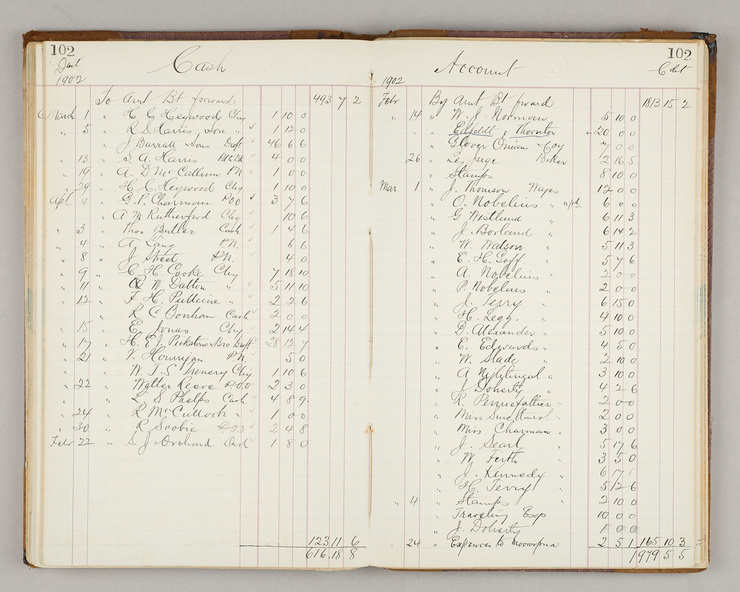 102
Debt
1902
Cash
To Amt Bt forward 493 7 2
March 1 " H. C. Heywood Chq 1 10 0
" 5 " R. S. Harris, Son " 1 12 0
" J Burrall Sons Drft 46 6 6
" 13 " S. A. Harris 4 0 0
" 19 " A. D. McCallum PN 1 0 0
" 29 " H. C. Heywood Chq 1 10 0
Apl " G. P. Charman POO 3 7 6
" A. M. Rutherford Chq 1 10 6
" 3 " Thos Butler Cash 1 4 6
" 4 " A. Lang P.N. 6 6
" 8 " J Skeat P.N. 4 0
" 9 " C. H. Cooke Chq 7 18 10
" 11 " W Dalton " 5 11 10
" 12 " F. H. " 2 2 6
" R C Bonham Cash 2 0 0
" 15 " E. Jonas Chq 2 14 4
" 17 " H. E. Bro Drft 28 13 7
" 21 " V. Hourigan P.N. 5 0
" W. J. S. Chq 1 10 6
" 22 " Walter Reeve POO 2 3 0
" L S Phelps Cash 4 8 9
" 24 " R McCulloch " 1 0 0
" 30 " R Scobie POO 2 4 8
Febr 22 " S. J. Cash 1 8 0
123 11 6
616 18 8
102
Account
Cdt
1902
Febr By Amt Bt forward 1813 15 2
" 14 " W. J. Norman 5 10 0
" " Thornton 20 0 0
" Glover Onian & Coy 7 0 0
" 26 " Baker 2 16 5
" Stamps 8 10 0
Mar 1 " J. Thomson Wages 12 0 0
" O. Nobelius 6 0 0
" G Westlund " 6 11 3
" J. Borland " 6 14 2
" W. Watson " 5 11 3
" E. H. Goff " 5 7 6
" A. Nobelius " 2 0 0
" P. Nobelius " 2 0 0
" J. Terry " 6 15 0
" H. Legg " 4 10 0
" G. Alexander " 5 10 0
" E. Edwards " 4 5 0
" W. Slade " 2 10 0
" A Nightingal " 3 10 0
" J Doherty " 4 2 6
" R Pennefather " 2 0 0
" Miss Smethurst " 2 0 0
" Miss Charman " 3 0 0
" J. Searl " 5 17 6
" W. Firth " 3 5 0
" J. Kennedy " 6 17 1
" H. Terry " 5 12 6
" 4 " Stamps " 2 10 0
" Traveling Exp 10 0 0
" J. Doherty 1 0 0
" 24 " Expences to 2 5 1 165 10 3
1979 5 5